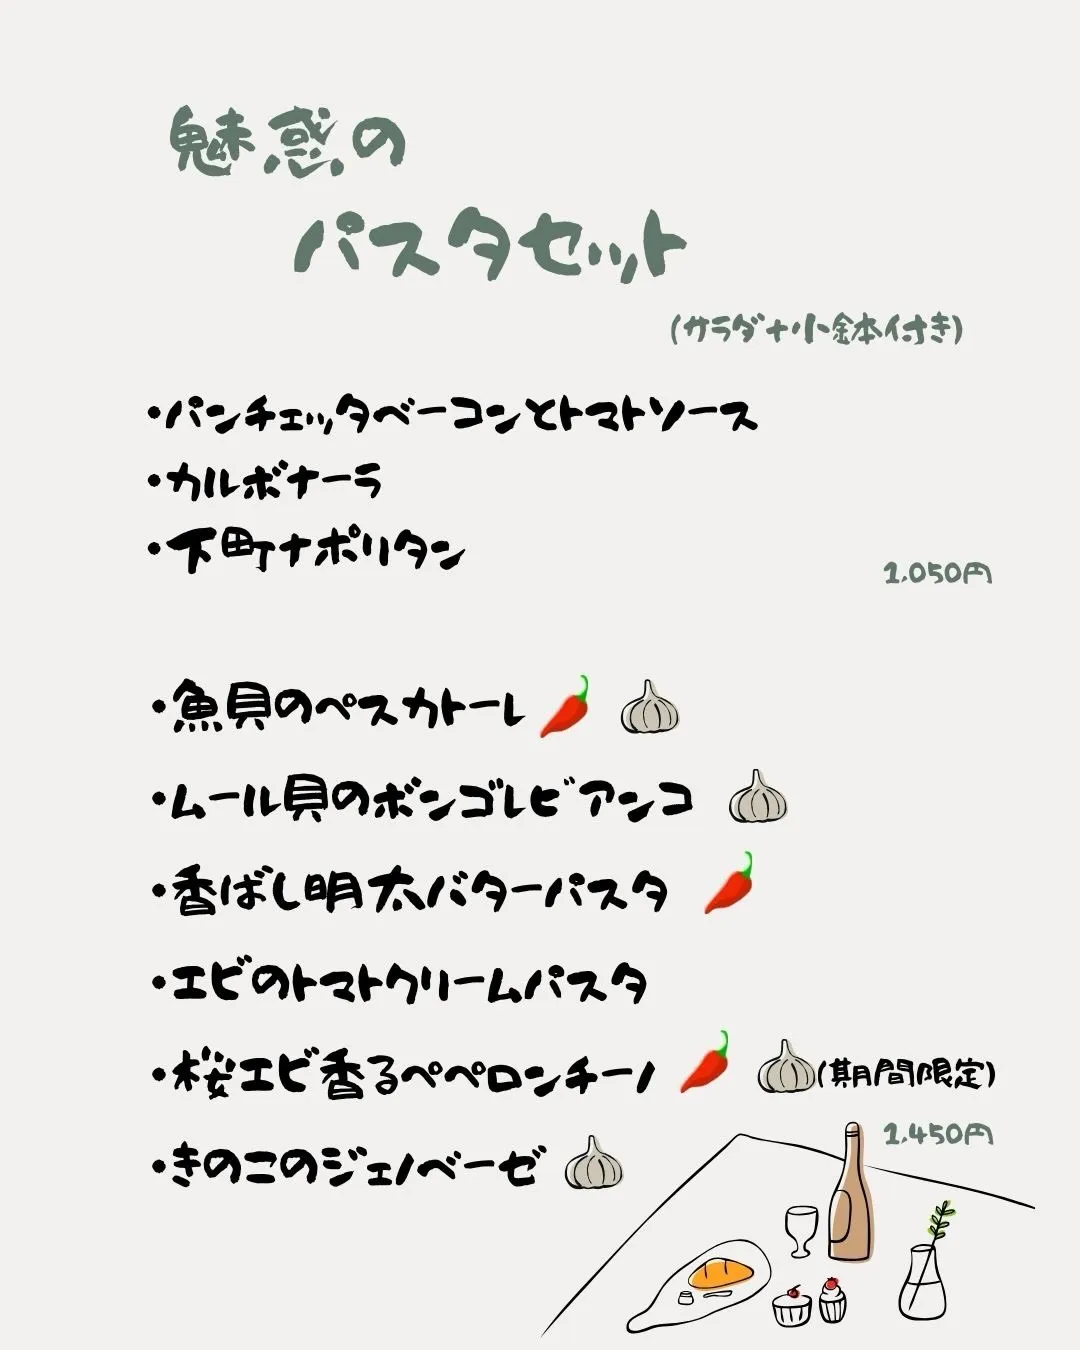 魅惑の
パスタセット
(サラダ+小鉢付き)
・パンチェッタベーコンとトマトソース
・カルボナーラ
・下町ナポリタン
1,050円
・魚貝のペスカトーレ
・ムール貝のボンゴレビアンコ
・香ばし明太バターパスタ
・エビのトマトクリームパスタ
・桜エビ香るペペロンチーノ (期間限定)
1,450円
・きのこのジェノベーゼ